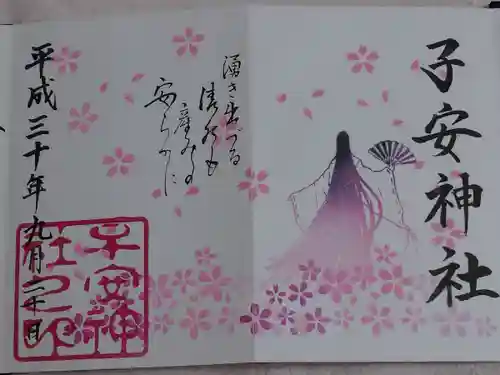 子安神社
湧き出づる
産みの
安らかに
平成三十年九月二十日
子安神
社之印